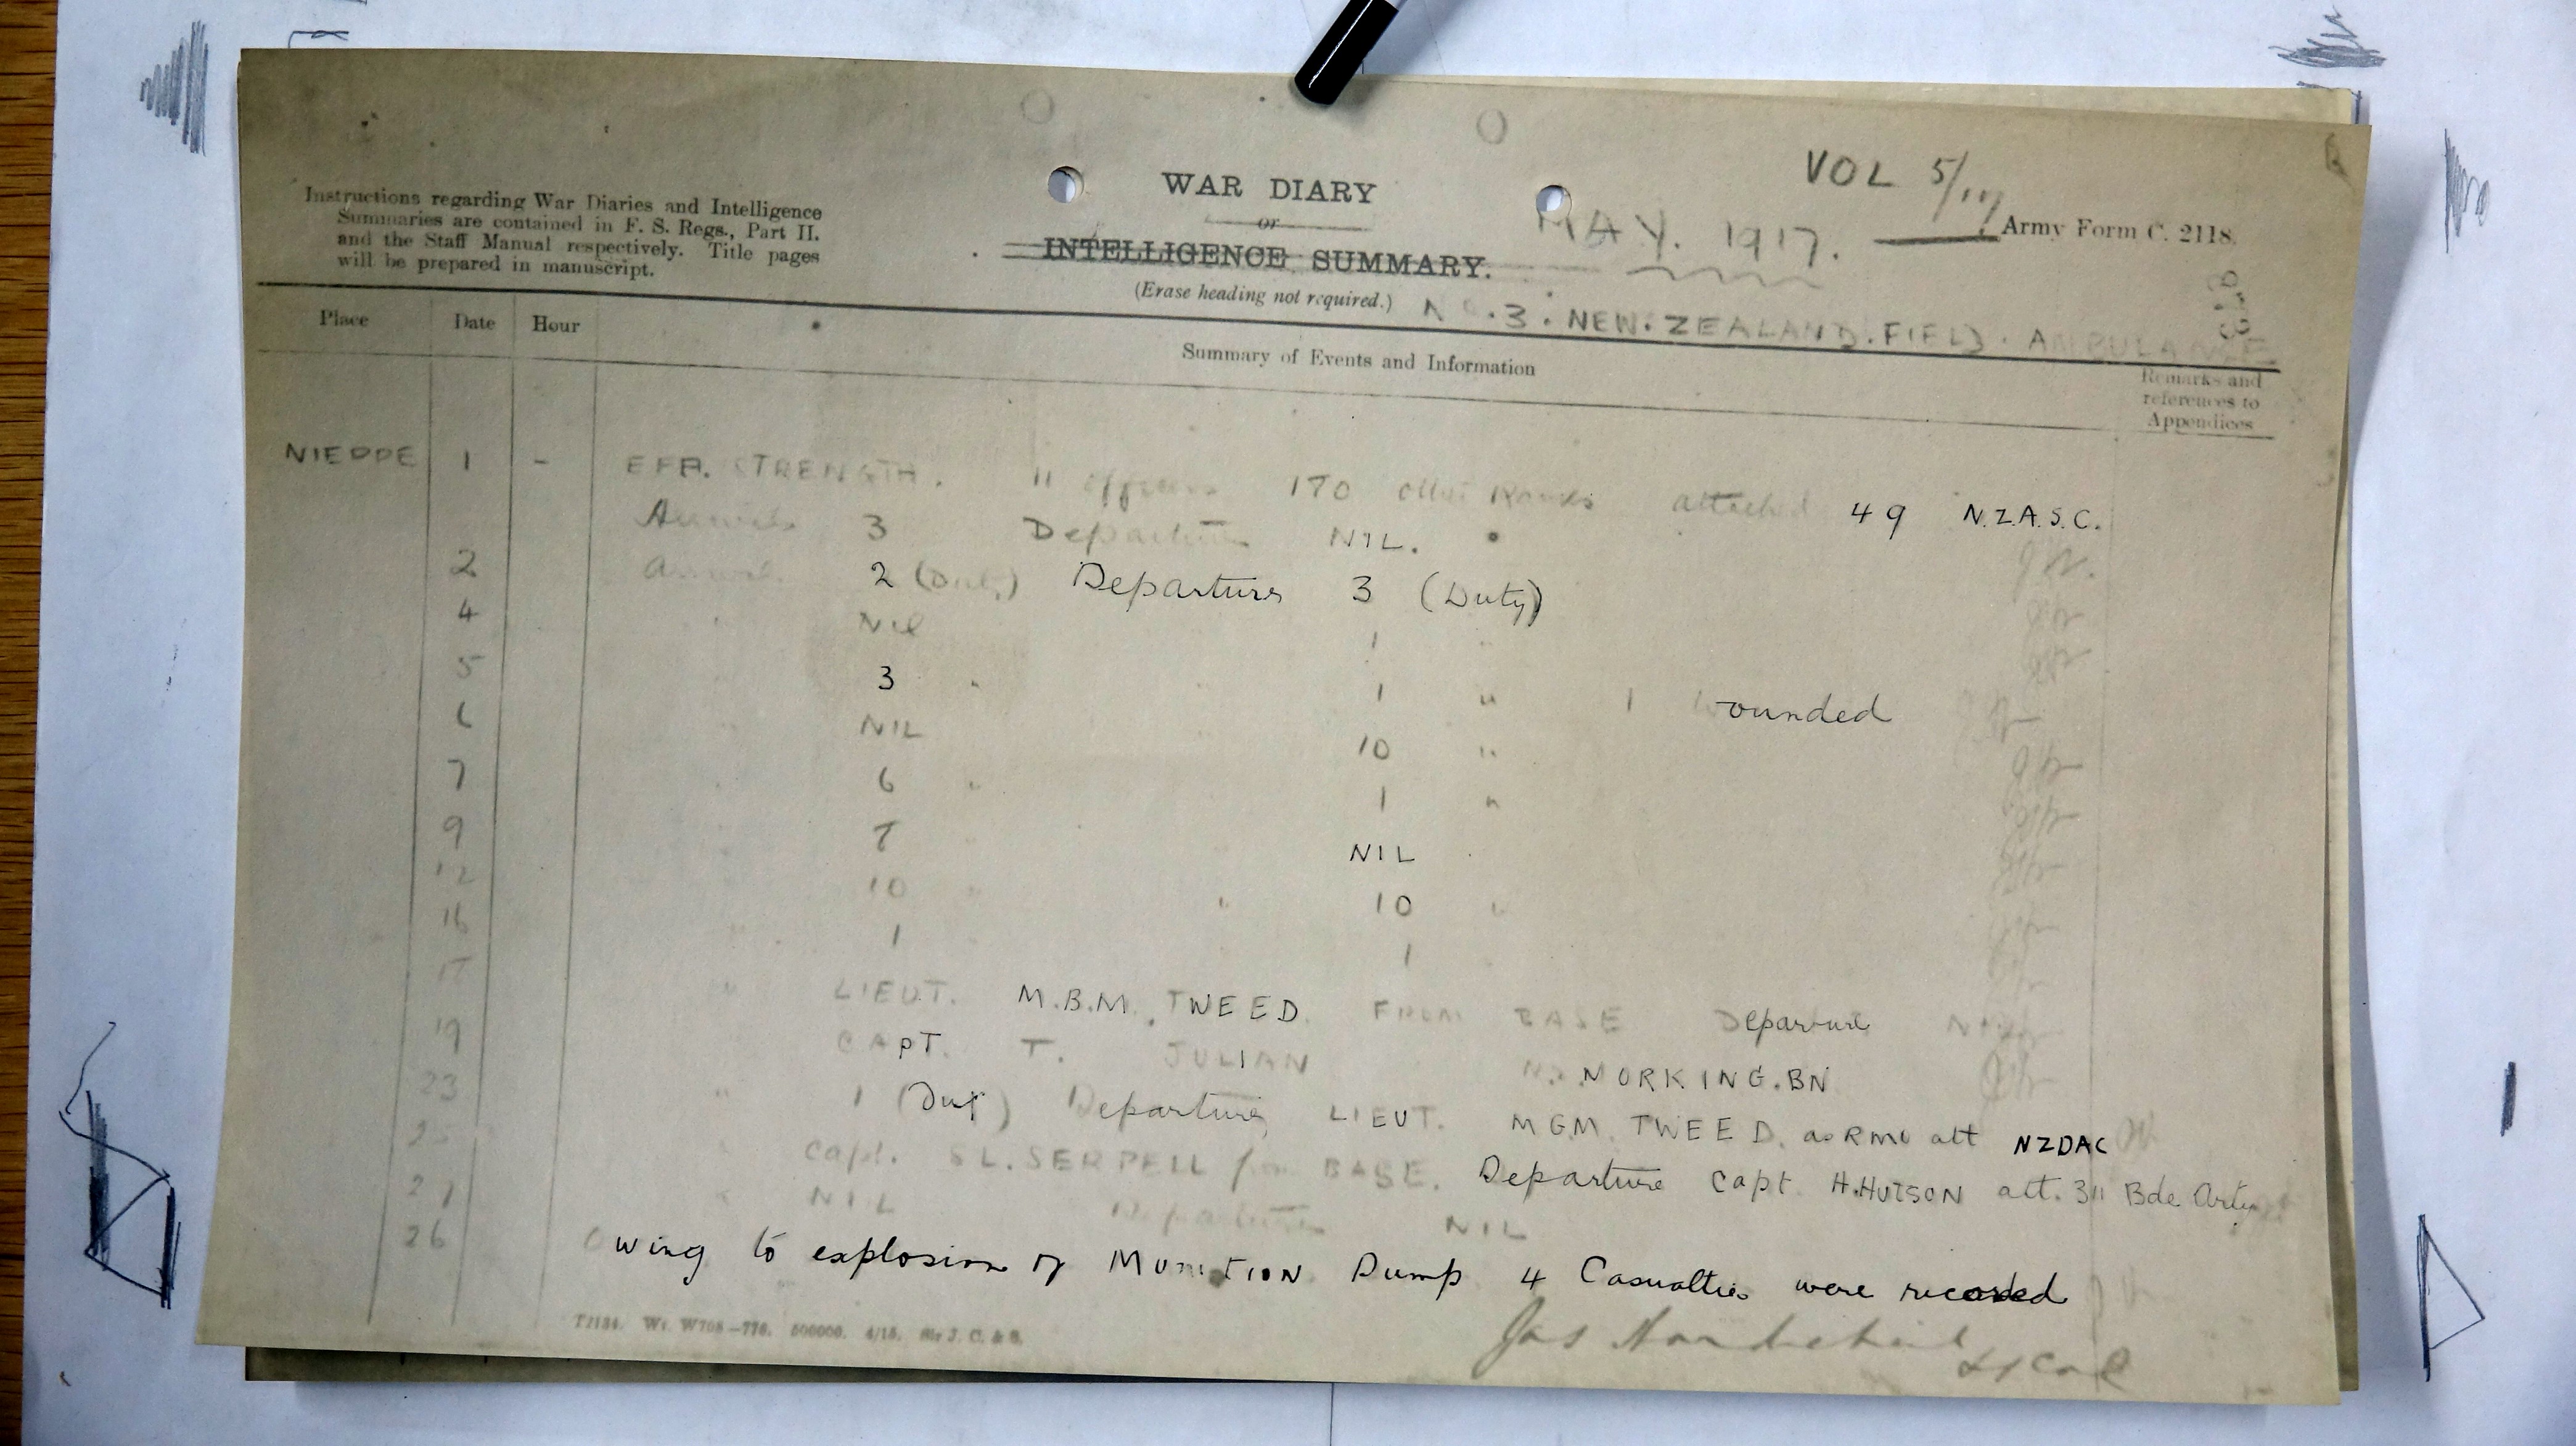 VOL 5/
WAR DIARY
or
INTELLIGENCE SUMMARY.
(Erase heading not required.)
MAY. 1917.
Army Form C. 2118.
Instructions regarding War Diaries and Intelligence
Summaries are contained in F. S. Regs., Part II.
and the Staff Manual respectively. Title pages
will be prepared in manuscript.
No. 3. NEW. ZEALAND. FIELD. AMBULANCE
Place Date Hour Summary of Events and Information Remarks and
references to
Appendices
NIEPPE 1 - EFF. STRENGTH. 11 officers 170 other Ranks attached 49 N.Z.A.S.C.
Arrivals 3 Departures NIL.
2 Arrivals 2 (Duty) Departures 3 (Duty)
4 Nil 1 "
5 3 " 1 " 1 Wounded
6 NIL 10 "
7 6 " 1 "
9 7 NIL
12 10 " " 10 "
16 1 1
17 " LIEUT. M.B.M. TWEED. FROM BASE Departure Nil
19 CAPT. T. JULIAN N.Z. WORKING. BN
23 " 1 (Duty) Departures LIEUT. MGM. TWEED. as RMO att NZDAC
25 Capt. S L. SERPELL from BASE. Departure Capt H. HUTSON att. 311 Bde Arty
27 " NIL Departures NIL
26 Owing to explosion of MUNITION Dump 4 Casualties were recorded
Jas Lt Col
T2134. Wt. W708—776. 500000. 4/15. Sir J. C. & S.